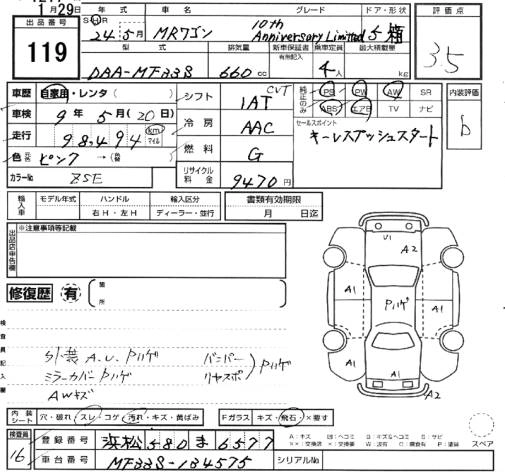 1月29日
出品番号
119
年式
車名
グレード
ドア・形状
24年5月
MRワゴン
10th Anniversary Limited
5箱
型式
排気量
新車保証書
有無記入
乗車定員
最大積載量
DBA-MF33S
660cc
4人
kg
評価点
3.5
車歴
自家用・レンタ( )
車検
9年5月(20日)
走行
98,494
km
マイル
色
ピンク
カラーNo
ZSE
シフト
CVT
1AT
冷房
AAC
燃料
G
リサイクル料金
9470円
純正のみ
PS
PW
AW
SR
ABS
エアB
TV
ナビ
内装評価
b
セールスポイント
キーレスプッシュスタート
輸入車
モデル年式
ハンドル
輸入区分
書類有効期限
右H・左H
ディーラー・並行
月 日迄
出品店申告欄
※注意事項等記載
修復歴
有
箇所
検査員記入欄
外装A.U.Pハゲ
ミラーカバーPハゲ
AWキズ
バンパー
リヤスポ
Pハゲ
U1
A2
A1
A1
Pハゲ
A1
A1
A1
A2
内装シート
穴・破れ・スレ・コゲ・汚れ・キズ・黄ばみ
Fガラス
キズ・飛石・×要す
検査員
16
登録番号
浜松580ま6577
車台番号
MF33S-134575
シリアルNo
スペア